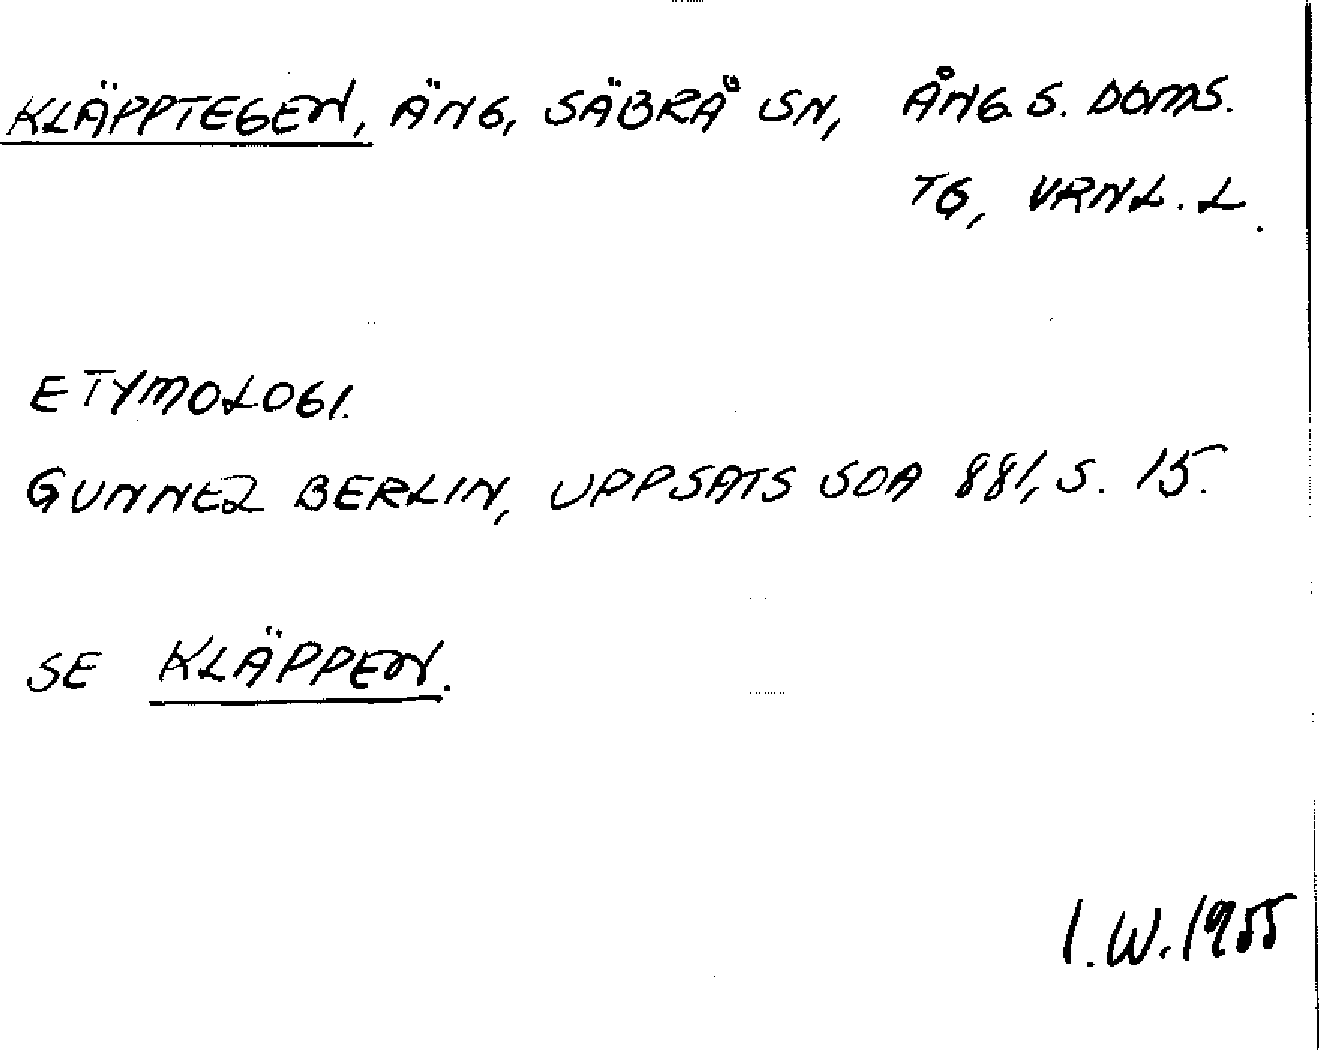 KLÄPPTEGEN, ÄNG, SÄBRÅ SN, ÅNG. S. DOMS.
TG, VRNL. L.
ETYMOLOGI.
GUNNEL BERLIN, UPPSATS SOA 881, S. 15.
SE KLÄPPEN.
I.W. 1955